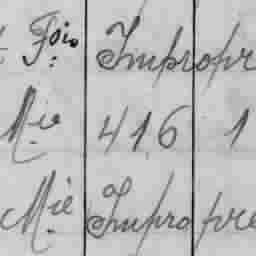 Fois Impropr
Mie 416 1
Mie Impropre